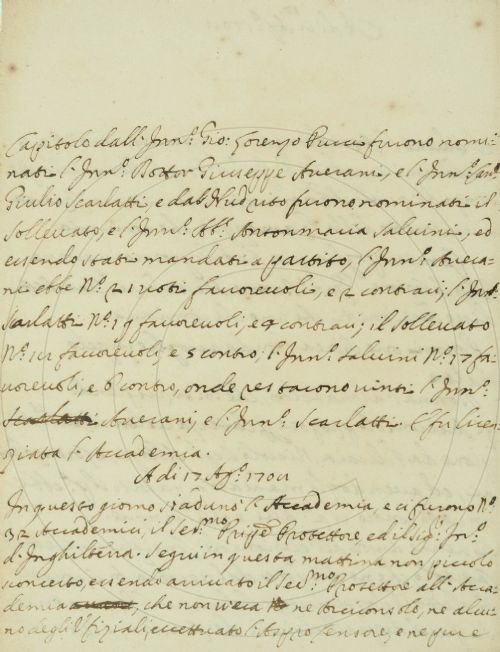 Capitolo dall'Inn.º Gio: Lorenzo Pucci furono nomi-
nati l'Inn.º Dottor Giuseppe Averani, e l'Inn.º
Giulio Scarlatti, e dal Nudrito furono nominati il
Sollevato, e l'Inn.º Ab.e Antonmaria Salvini, ed
essendo stati mandati a partito, l'Inn.º Avera-
ni ebbe N.º 21 voti favorevoli, e 2 contrari; l'Inn.º
Scarlatti N.º 19 favorevoli, e 4 contrari; il Sollevato
N.º favorevoli, e 5 contro; l'Inn.º Salvini N.º 17 fa-
vorevoli, e 6 contro, onde restarono vinti l'Inn.º
Scarlatti Averani, e l'Inn.º Scarlatti. E fu licen-
ziata l'Accademia.
A di 17 Ag.º 170
In questo giorno si adunò l'Accademia, e ci furono N.º
32 Accademici, il Ser.mo Prñpe Protettore ed il Sig.r In.º
d'Inghilterra. Seguì in questa mattina non piccolo
sconcerto, essendo arrivato il Ser.mo Protettore all'Acca-
demia, che non v'era ne Arciconsolo, ne alcu-
no degli Ufiziali, eccettuato l'Aspro Censore, e neppure